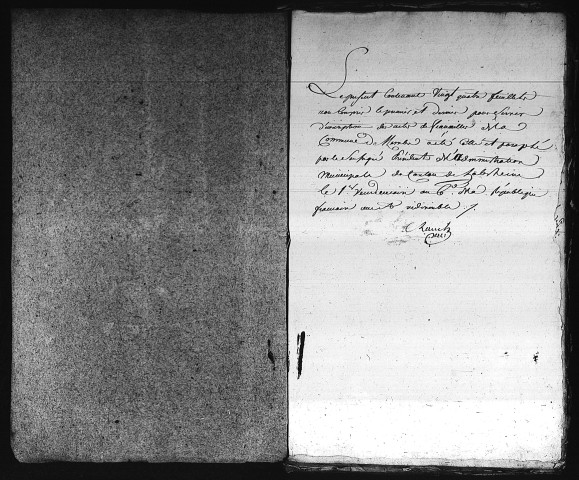 Le present Contenant Vingt quatre feuillets
non Compris le premier et dernier pour servir
d'inscription des actes de fiancailles de la
Commune de a été Coté et paraphé
par le Soussigné Président de l'Administration
Municipale du Canton de
le 1er Vendemiaire an 6e de la République
francaise une et indivisible ./.